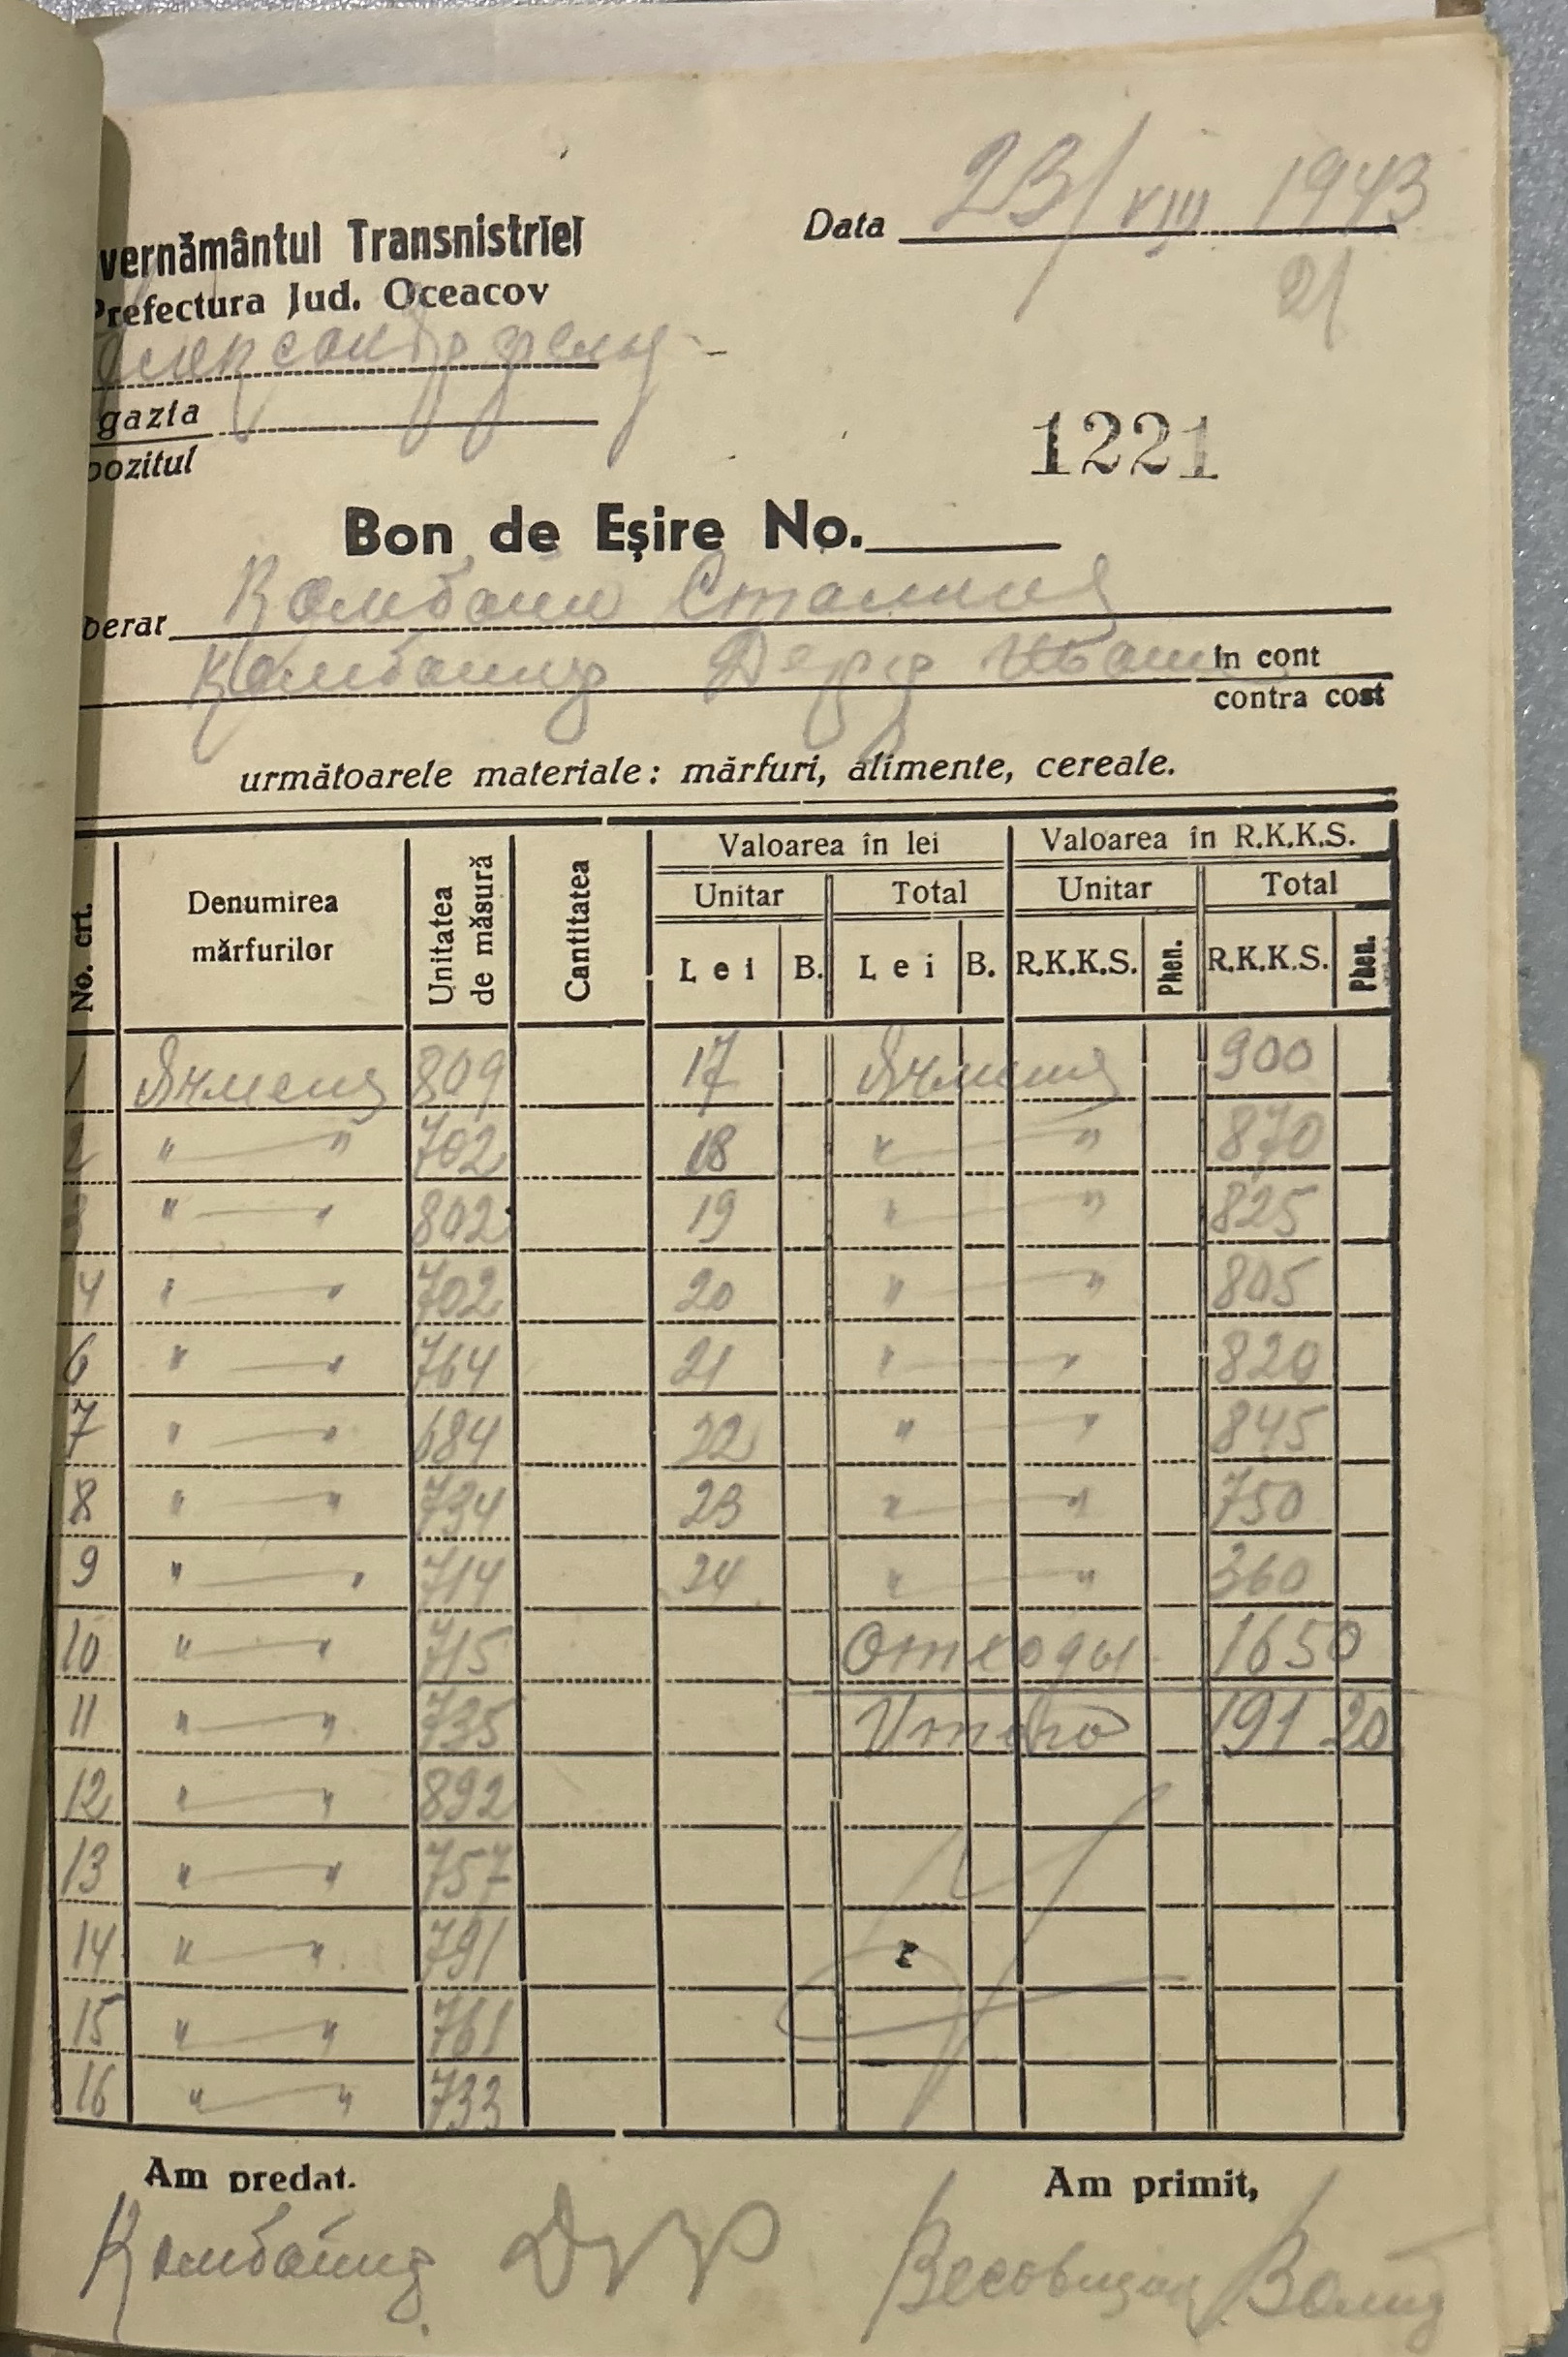 vernământul Transnistriei
Prefectura Jud. Oceacov
Data 23/VIII 1943
21
gazia
pozitul
1221
Bon de Eşire No.
berar Комбайн Сталинец
Комбайнер Иван în cont
contra cost
următoarele materiale: mărfuri, alimente, cereale.
No. crt. Denumirea mărfurilor Unitatea de măsură Cantitatea Valoarea în lei Valoarea în R.K.K.S.
Unitar Total Unitar Total
Lei B. Lei B. R.K.K.S. Phen. R.K.K.S. Phen.
Ячмень 809 17 Ячмень 900
2 " — " 702 18 " — " 870
3 " — " 802 19 " — " 825
4 " — " 702 20 " — " 805
6 " — " 764 21 " — " 820
7 " — " 684 22 " — " 845
8 " — " 734 23 " — " 750
9 " — " 714 24 " — " 360
10 " — " 715 Отходы 1650
11 " — " 735 Итого 191 20
12 " — " 892
13 " — " 757
14 " — " 791
15 " — " 761
16 " — " 733
Am predat. Am primit,
Комбайнер Весовщик